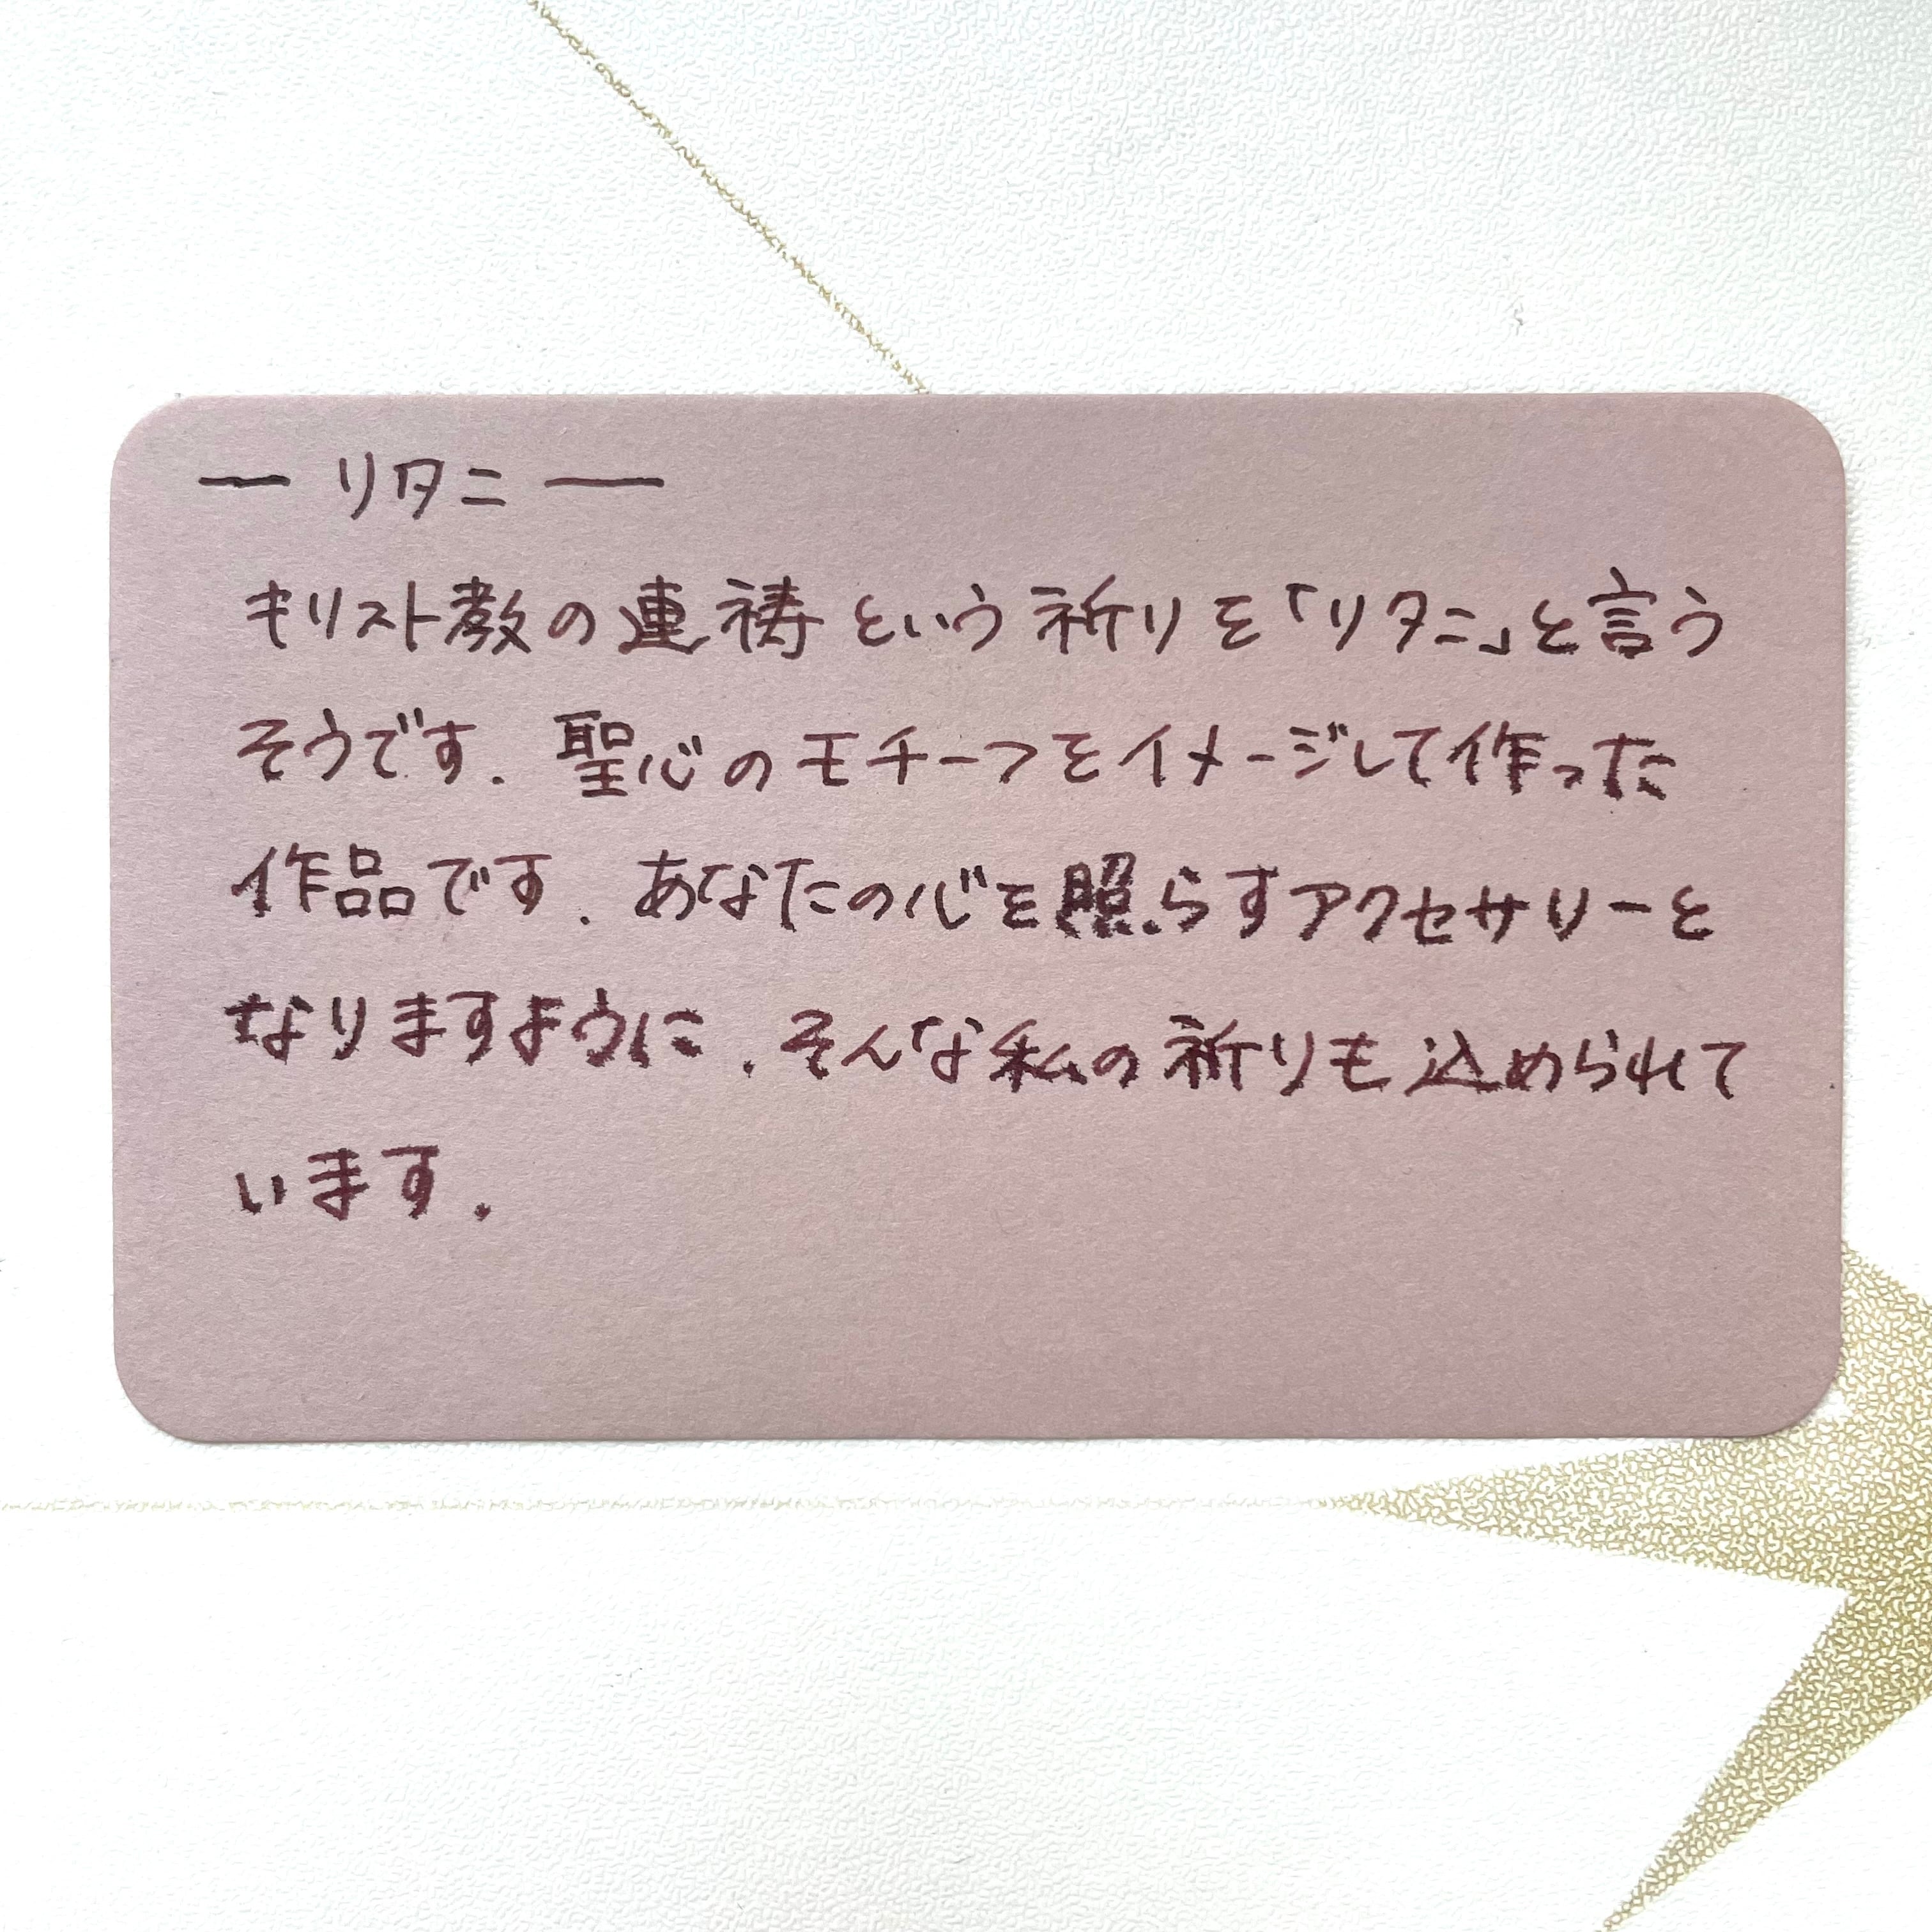 ― リタニ ―
キリスト教の連祷という祈りを「リタニ」と言う
そうです. 聖心のモチーフをイメージして作った
作品です. あなたの心を照らすアクセサリーと
なりますように. そんな私の祈りも込められて
います.